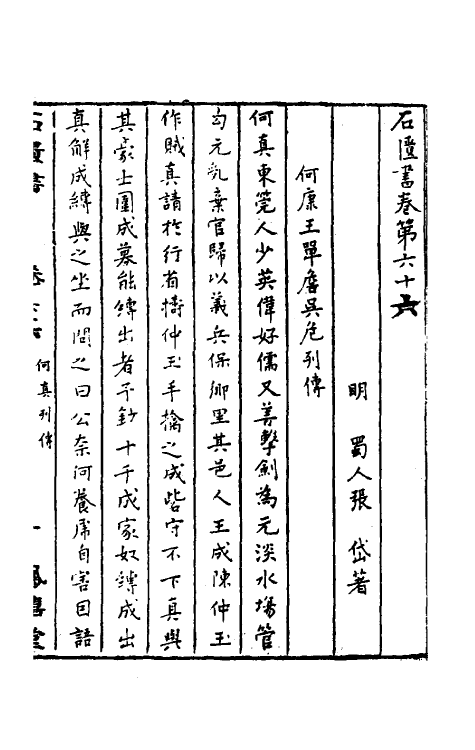 石匱書卷第六十六
明 蜀人張 岱著
何康王單詹吳危列傳
何真東筦人少英偉好儒又善擊劍為元淡水場管
勾元亂棄官歸以義兵保鄉里其邑人王成陳仲玉
作賊真請於行省擣仲玉手擒之成砦守不下真與
其豪士圍成募能縛出者予鈔十千成家奴縛成出
真解成縛與之坐而問之曰公奈何養虎自害因語
石匱書 卷六十六 何真列傳 一 鳳嬉堂